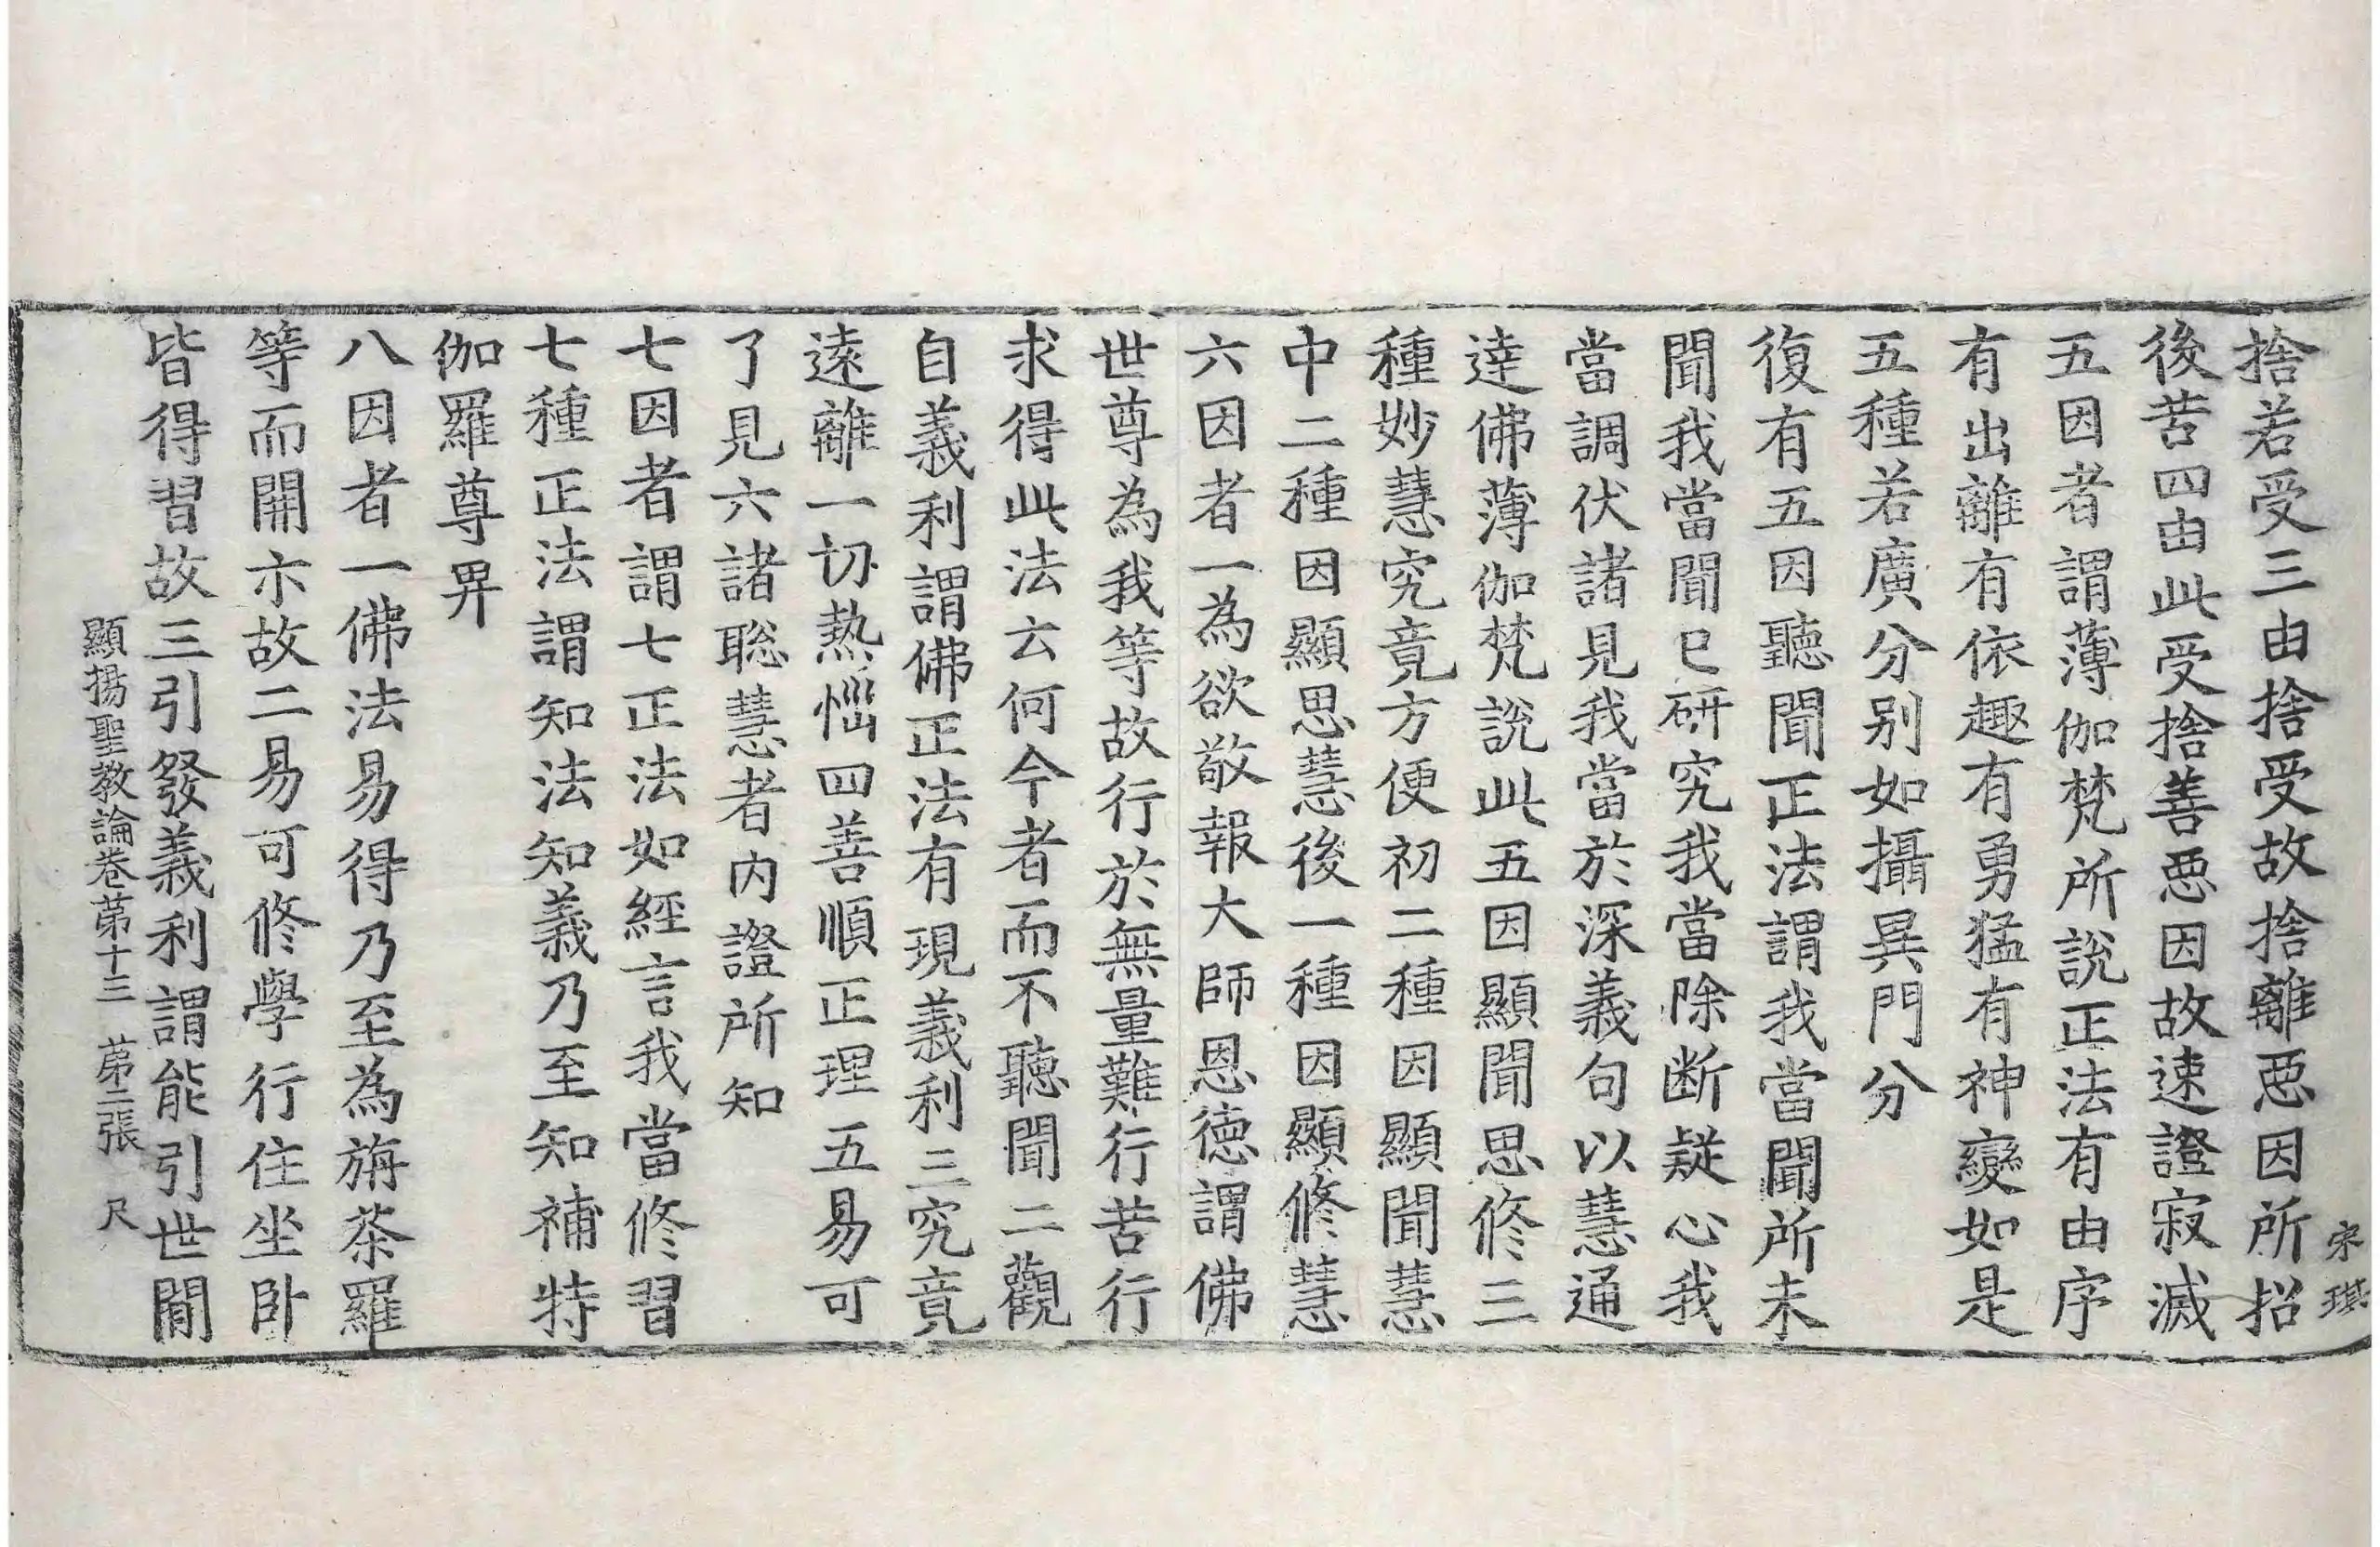 宋琪
捨若受三由捨受故捨離恶因所招
後苦四由此受捨善恶因故速證寂滅
五因者謂薄伽梵所說正法有由序
有出離有依趣有勇猛有神變如是
五種若廣分别如攝異門分
復有五因聽聞正法謂我當聞所未
聞我當聞已研究我當除断疑心我
當調伏諸見我當於深義句以慧通
達佛薄伽梵說此五因顯聞思修三
種妙慧究竟方便初二種因顯聞慧
中二種因顯思慧後一種因顯修慧
六因者一為欲敬報大師恩德謂佛
世尊為我等故行於無量難行苦行
求得此法云何今者而不聽聞二觀
自義利謂佛正法有現義利三究竟
遠離一切热惱四善順正理五易可
了見六諸聡慧者内證所知
七因者謂七正法如經言我當修習
七種正法謂知法知義乃至知補特
伽羅尊畀
八因者一佛法易得乃至為旃荼羅
等而開示故二易可修學行住坐卧
皆得習故三引發義利謂能引世間
顯揚聖教論卷苐十三 苐二張 尺